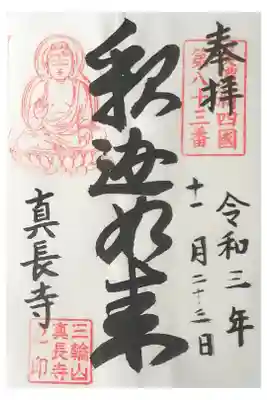 奉拝
四國
第八十三番
令和三年
十一月二十三日
釈迦如来
真長寺
三輪山
真長寺
之印